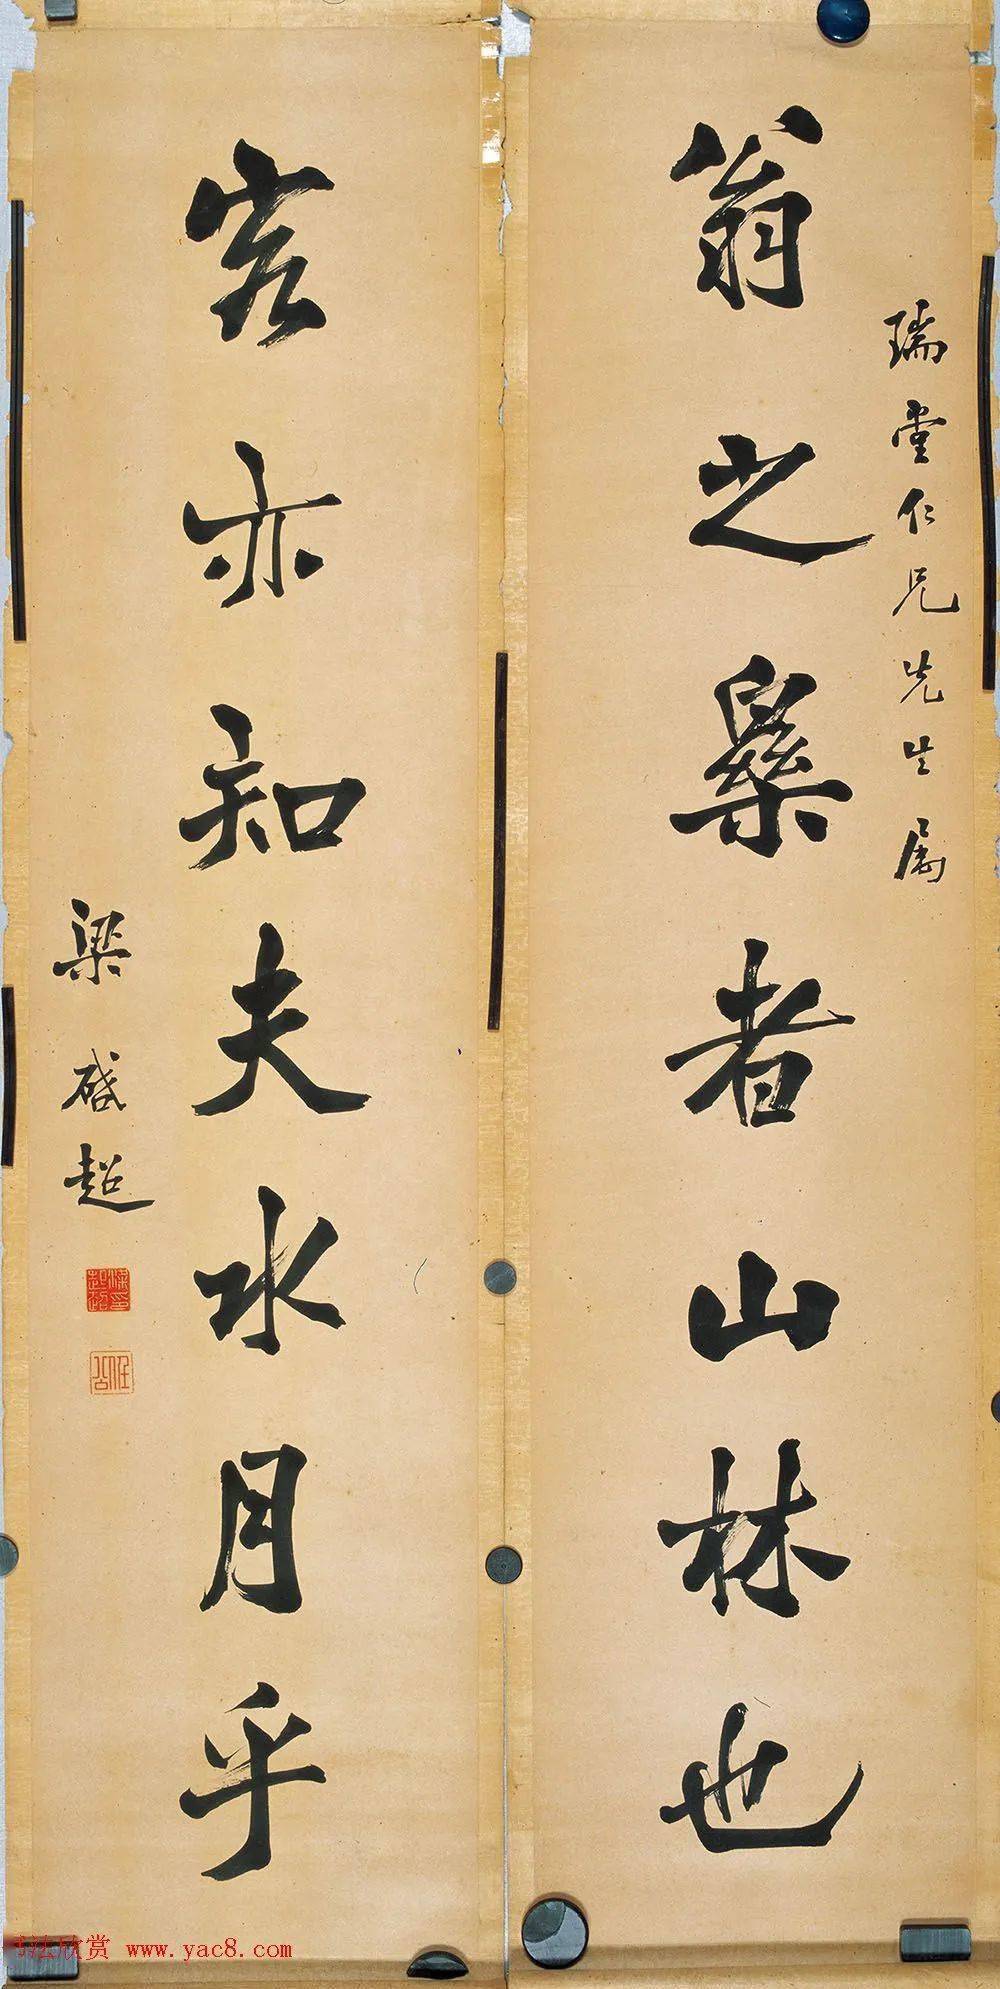 瑞堂仁兄先生属
翁之樂者山林也
客亦知夫水月乎
梁啟超
任公
书法欣赏 www.yac8.com